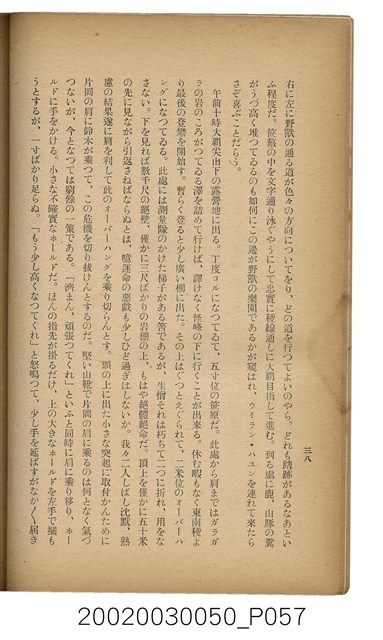 三八
右に左に野獸の通る道が色々の方向についてをり、どの道を行つてよいのやら。どれも踏跡があるなあとい
ふ程度だ。笹藪の中を文字通り泳ぐやうにして忠實に稜線通しに大覇目指して進む。到る處に鹿、山豚の糞
がうづ高く堆つてゐるのも如何にこの邊が野獸の樂園であるかが窺はれ、ウイラン・ハユンを連れて來たら
さぞ喜ぶことだらう。
午前十時大覇尖山下の露營地に出る。丁度コルになつてゐて、五寸位の笹原だ。此處から肩まではガラガ
ラの岩のころがつてゐる澤を詰めて行けば、譯けなく怪峰の下に行くことが出來る。休む暇もなく東南稜よ
り最後の登攀を開始す。暫らく登ると少し廣い棚に出た。その上はぐつとえぐられて、二米位のオーバーハ
ングになつてゐる。此處には測量隊のかけた梯子がある筈であるが、生憎それは朽ちて二つに折れ、用をな
さない。下を見れば數千尺の絕壁、僅かに三尺ばかりの岩棚の上、もはや絕體絕命だ。頂上を僅かに五十米
の先に見ながら引返さねばならぬとは、噫運命の惡戯も少しひど過ぎはしないか。我々二人しばし沈默、熟
慮の結果遂に肩を利して此のオーバーハングを乘り切らんとす。頭の上に出た小さな突起に取付かんために
片岡の肩に鈴木が乘つて、この危機を切り拔けんとするのだ。堅い山靴で片岡の肩に乘るのは何となく氣づ
つないが、今となつては窮餘の一策である。「濟まん、頑張つてくれ」といふと同時に肩に乘り移り、ホー
ルドに手をかける。小さな不確實なホールドだ。ほんの指先が掛るだけ、上の大きなホールドを左手で摑も
うとするが、一寸ばかり足らぬ。「もう少し高くなつてくれ」と怒鳴つて、少し手を延ばすがなか〱屆き
20020030050_P057